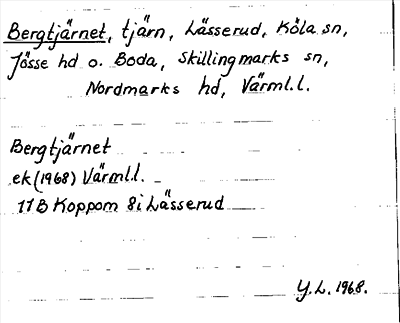 Bergtjärnet, tjärn, Lässerud, Köla sn,
Jösse hd o. Boda, Skillingmarks sn,
Nordmarks hd, Värml.l.
Bergtjärnet
ek (1968) Värml.l.
11B Koppom 8i Lässerud
Y.L. 1968.